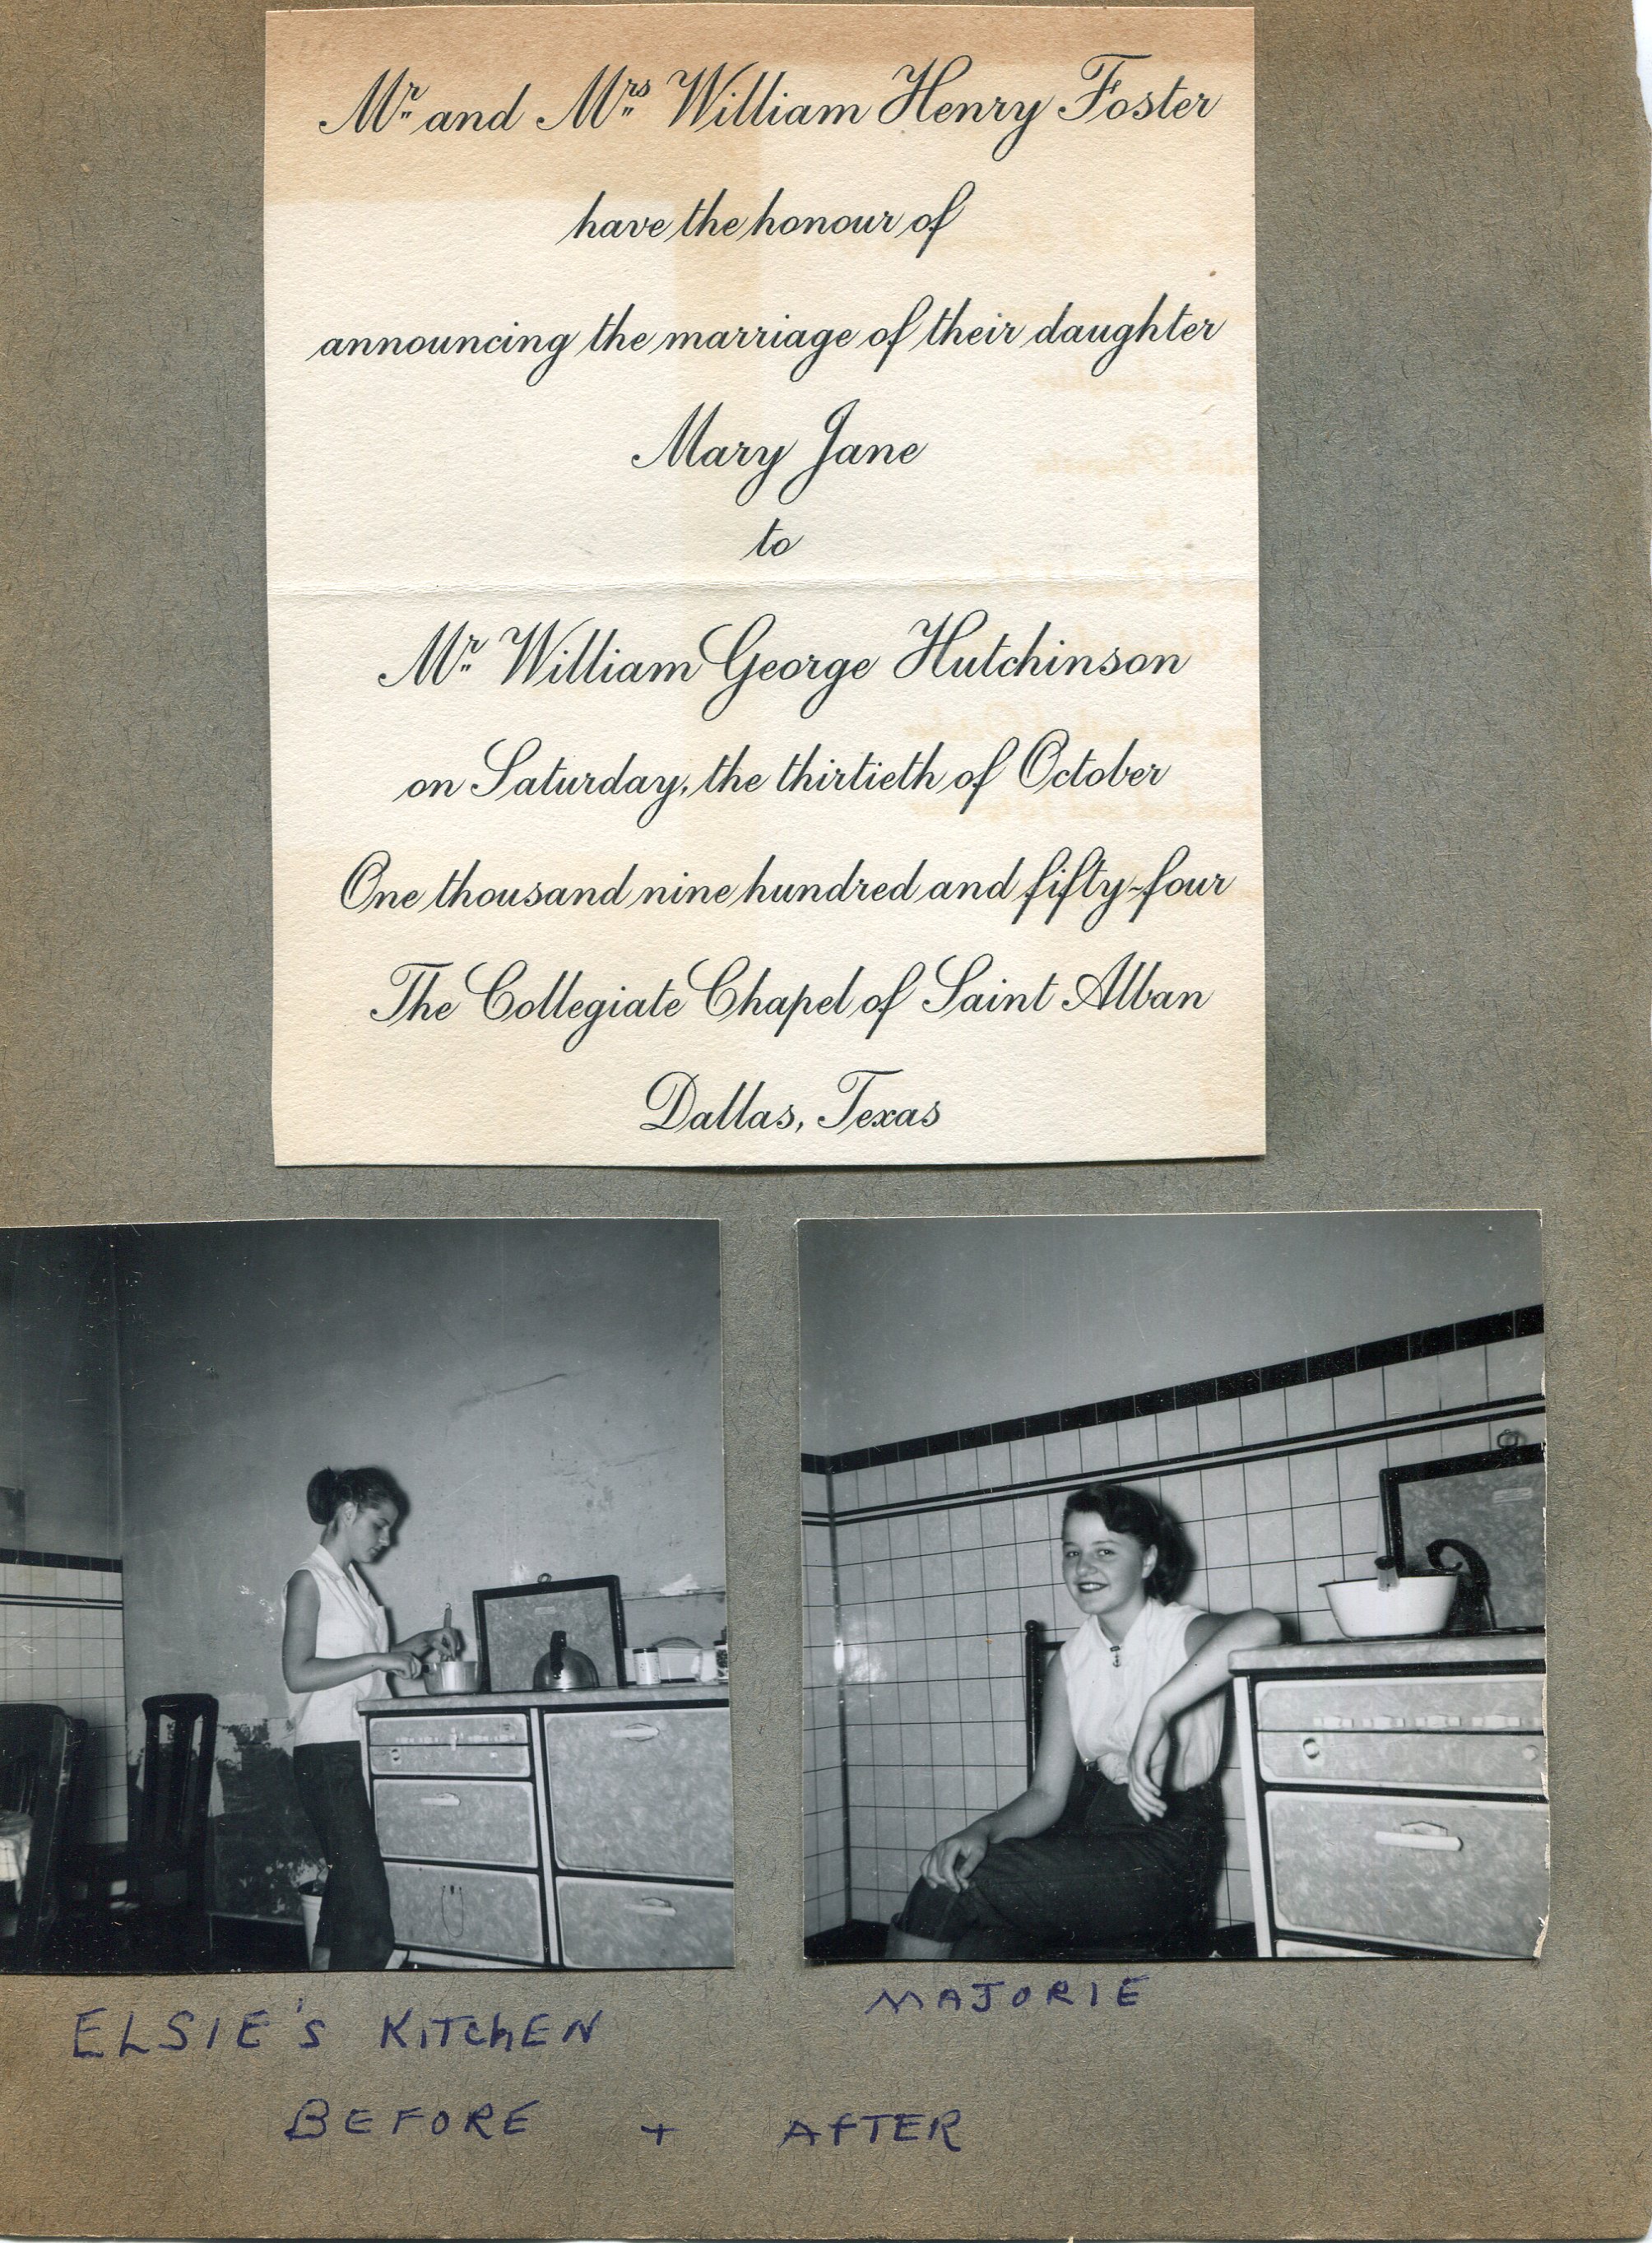 Mr. and Mrs. William Henry Foster
have the honour of
announcing the marriage of their daughter
Mary Jane
to
Mr. William George Hutchinson
on Saturday, the thirtieth of October
One thousand nine hundred and fifty-four
The Collegiate Chapel of Saint Alban
Dallas, Texas
MAJORIE
ELSIE'S KITCHEN
BEFORE + AFTER